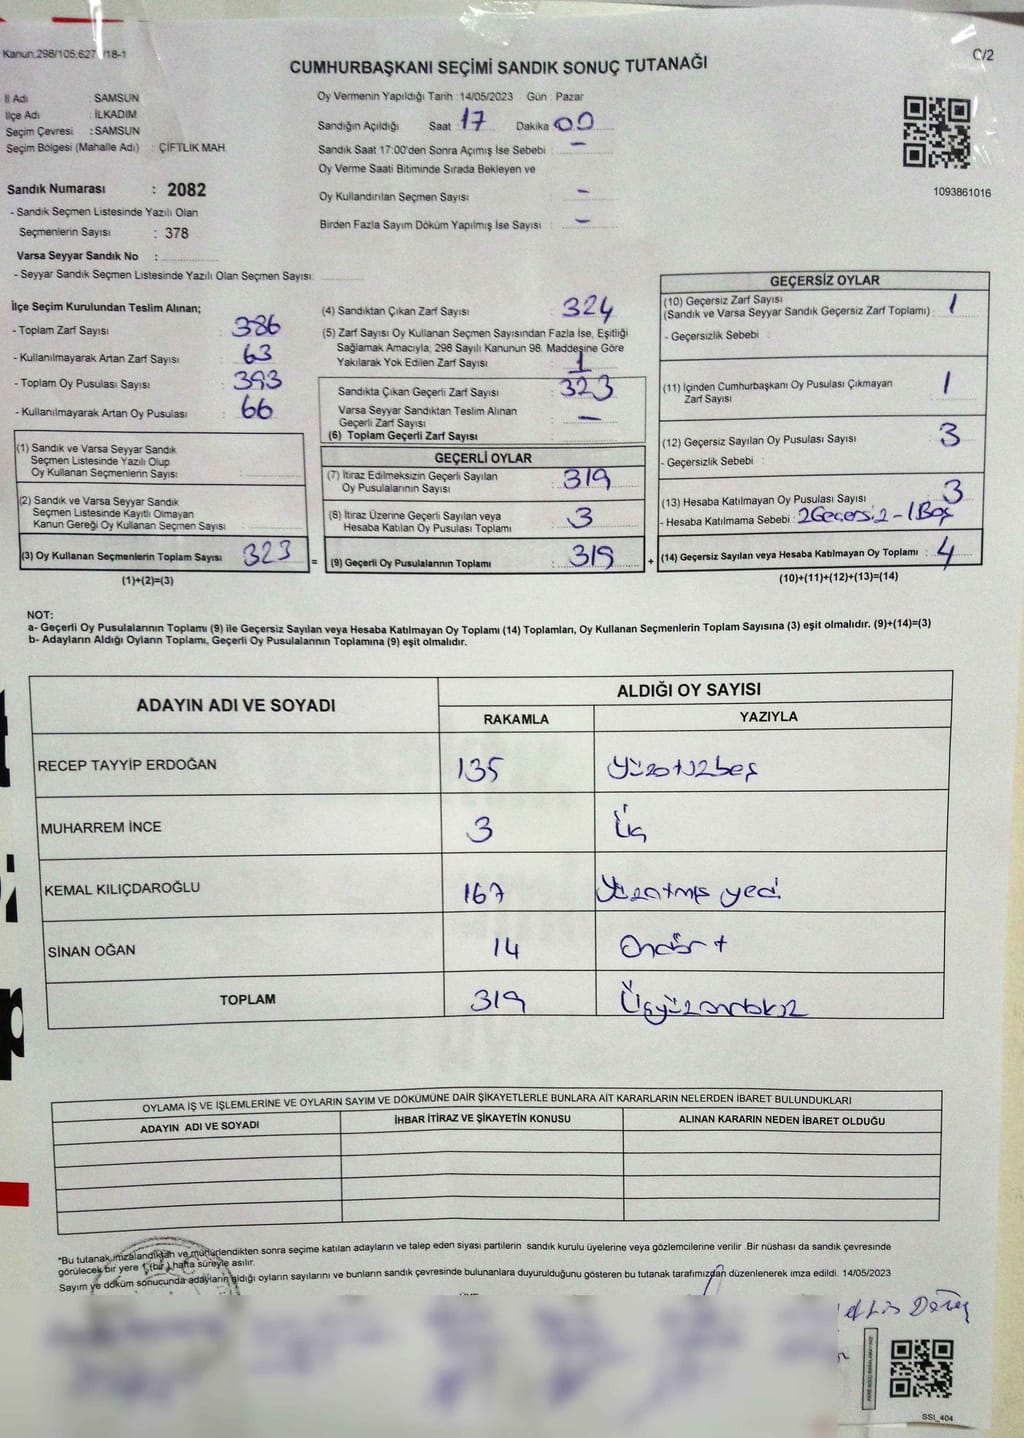 Kanun.298/105,627 18-1
C/2
CUMHURBAŞKANI SEÇİMİ SANDIK SONUÇ TUTANAĞI
İl Adı : SAMSUN
İlçe Adı : İLKADIM
Seçim Çevresi : SAMSUN
Seçim Bölgesi (Mahalle Adı) : ÇİFTLİK MAH.
Sandık Numarası : 2082
- Sandık Seçmen Listesinde Yazılı Olan
Seçmenlerin Sayısı : 378
Varsa Seyyar Sandık No :
- Seyyar Sandık Seçmen Listesinde Yazılı Olan Seçmen Sayısı:
Oy Vermenin Yapıldığı Tarih : 14/05/2023 Gün : Pazar
Sandığın Açıldığı Saat : 17 Dakika 00
Sandık Saat 17:00'den Sonra Açımış İse Sebebi : -
Oy Verme Saati Bitiminde Sırada Bekleyen ve
Oy Kullandırılan Seçmen Sayısı : -
Birden Fazla Sayım Döküm Yapılmış İse Sayısı : -
1093861016
İlçe Seçim Kurulundan Teslim Alınan;
- Toplam Zarf Sayısı : 386
- Kullanılmayarak Artan Zarf Sayısı : 63
- Toplam Oy Pusulası Sayısı : 393
- Kullanılmayarak Artan Oy Pusulası : 66
(1) Sandık ve Varsa Seyyar Sandık
Seçmen Listesinde Yazılı Olup
Oy Kullanan Seçmenlerin Sayısı :
(2) Sandık ve Varsa Seyyar Sandık
Seçmen Listesinde Kayıtlı Olmayan
Kanun Gereği Oy Kullanan Seçmen Sayısı :
(3) Oy Kullanan Seçmenlerin Toplam Sayısı : 323 =
(1)+(2)=(3)
(4) Sandıktan Çıkan Zarf Sayısı : 324
(5) Zarf Sayısı Oy Kullanan Seçmen Sayısından Fazla İse, Eşitliği
Sağlamak Amacıyla; 298 Sayılı Kanunun 98. Maddesine Göre
Yakılarak Yok Edilen Zarf Sayısı : 1
Sandıkta Çıkan Geçerli Zarf Sayısı : 323
Varsa Seyyar Sandıktan Teslim Alınan
Geçerli Zarf Sayısı : -
(6) Toplam Geçerli Zarf Sayısı :
GEÇERLİ OYLAR
(7) İtiraz Edilmeksizin Geçerli Sayılan
Oy Pusulalarının Sayısı : 319
(8) İtiraz Üzerine Geçerli Sayılan veya
Hesaba Katılan Oy Pusulası Toplamı : 3
(9) Geçerli Oy Pusulalarının Toplamı : 319 +
GEÇERSİZ OYLAR
(10) Geçersiz Zarf Sayısı
(Sandık ve Varsa Seyyar Sandık Geçersiz Zarf Toplamı) : 1
- Geçersizlik Sebebi :
(11) İçinden Cumhurbaşkanı Oy Pusulası Çıkmayan
Zarf Sayısı : 1
(12) Geçersiz Sayılan Oy Pusulası Sayısı : 3
- Geçersizlik Sebebi :
(13) Hesaba Katılmayan Oy Pusulası Sayısı : 3
- Hesaba Katılmama Sebebi : 2 Geçersiz - 1 Boş
(14) Geçersiz Sayılan veya Hesaba Katılmayan Oy Toplamı : 4
(10)+(11)+(12)+(13)=(14)
NOT:
a- Geçerli Oy Pusulalarının Toplamı (9) ile Geçersiz Sayılan veya Hesaba Katılmayan Oy Toplamı (14) Toplamları, Oy Kullanan Seçmenlerin Toplam Sayısına (3) eşit olmalıdır. (9)+(14)=(3)
b- Adayların Aldığı Oyların Toplamı, Geçerli Oy Pusulalarının Toplamına (9) eşit olmalıdır.
ADAYIN ADI VE SOYADI
ALDIĞI OY SAYISI
RAKAMLA YAZIYLA
RECEP TAYYİP ERDOĞAN 135 Yüzotuzbeş
MUHARREM İNCE 3 Üç
KEMAL KILIÇDAROĞLU 167 Yüzatmış yedi
SİNAN OĞAN 14 Ondört
TOPLAM 319 Üçyüzondokuz
OYLAMA İŞ VE İŞLEMLERİNE VE OYLARIN SAYIM VE DÖKÜMÜNE DAİR ŞİKAYETLERLE BUNLARA AİT KARARLARIN NELERDEN İBARET BULUNDUKLARI
ADAYIN ADI VE SOYADI İHBAR İTİRAZ VE ŞİKAYETİN KONUSU ALINAN KARARIN NEDEN İBARET OLDUĞU
*Bu tutanak imzalandıktan ve mühürlendikten sonra seçime katılan adayların ve talep eden siyasi partilerin sandık kurulu üyelerine veya gözlemcilerine verilir. Bir nüshası da sandık çevresinde
görülecek bir yere 1 (bir) hafta süreyle asılır.
Sayım ve döküm sonucunda adayların aldığı oyların sayılarını ve bunların sandık çevresinde bulunanlara duyurulduğunu gösteren bu tutanak tarafımızdan düzenlenerek imza edildi. 14/05/2023
SSI_404